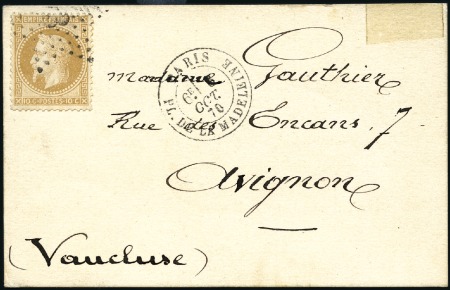 EMPIRE FRANÇAIS
10 C POSTES 10 C
PARIS
PL. DE LA MADELEINE
OCT.
70
madame Gauthier
Rue des Encans, 7
Avignon
(Vaucluse)